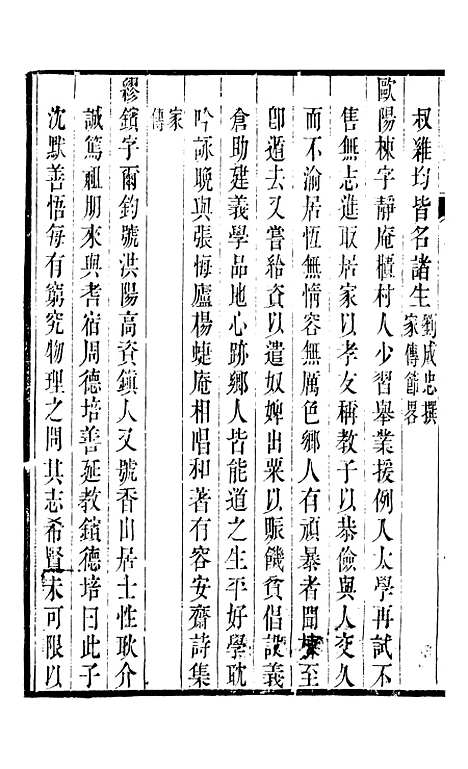 叔雞均皆名諸生劉成忠撰家傳節畧
歐陽棟字靜庵櫃村人少習舉業援例入太學再試不
售無志進取居家以孝友稱教子以恭儉與人交久
而不渝居恆無惰容無厲色鄉人有頑暴者聞棟至
卽遁去又嘗給資以遣奴婢出粟以賑饑貧倡設義
倉助建義學品地心跡鄉人皆能道之生平好學耽
吟詠晚與張悔廬楊蜨庵相唱和著有容安齋詩集
家傳
繆鑌字爾鈞號洪陽高資鎮人又號香山居士性耿介
誠篤祖朋來與耆宿周德培善延教鑌德培曰此子
沈默善悟每有窮究物理之問其志希賢未可限以